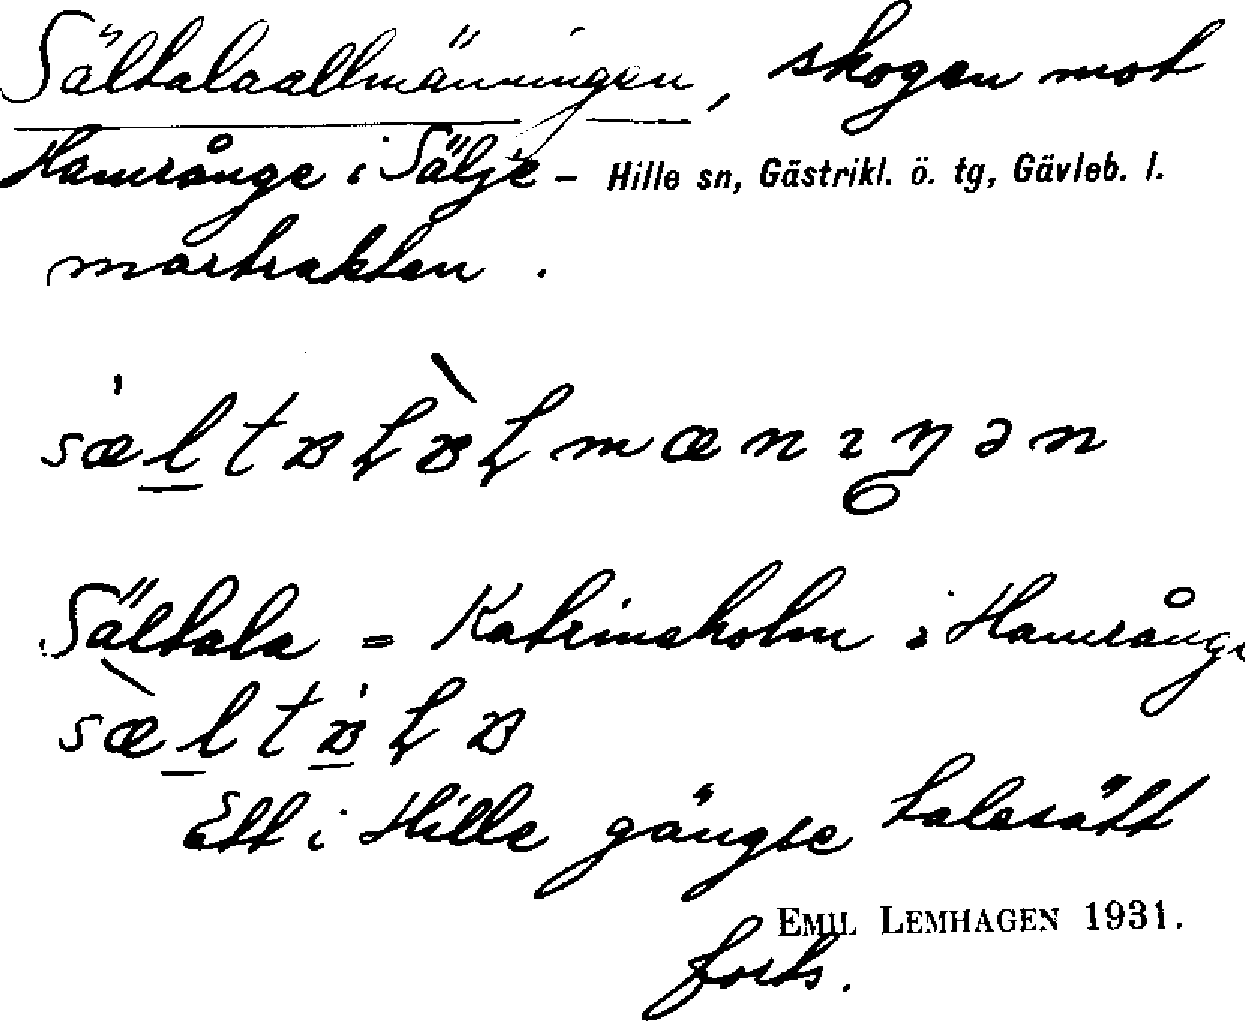 Sältalaallmänningen, skogen mot
Hamrånge i Sälje-
Hille sn, Gästrikl. ö. tg, Gävleb. l.
martrakten.
Sältala = Katrineholm i Hamrånge
Ett i Hille gängse talesätt
EMIL LEMHAGEN 1931.
forts.